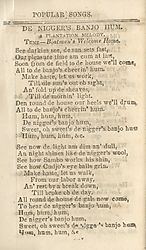 POPULAR SONGS.
DE NIGGER'S BANJO HUM.
A PLANTATION MELODY.
TUNE—Boatman's Welcome Home.
See darkies see, de sun sets fast,
Our pleasure time am cum at last,
Soon from de field to de house we'll come,
All to de banjo's cheerin' hum.
Make haste, let us work,
Till de sun's out ob sight,
An' fold up de sheaves,
Till de mornin' light.
Den round de house our heels we'll drum,
All to de banjo's cheerin' hum.
Hum, hum, hum, hum,
De nigger's banjo hum,
Sweet, oh sweet's de nigger's banjo hum
Hum, hum, hum, &c.
See now de light am dim an' dull,
An night shines like de nigger's wool,
See how Sambo works his shin,
See how Cudjo's eye balls grin.
Make haste, let us walk,
From our labor away,
An' rest by a break down,
Till
All round de house de gals now come,
To hear de nigger's banjo hum.
Hum, hum, hum,
De nigger's banjo hum,
Sweet, oh sweet's de nigger's banjo hum,
Hum, hum, hum, &c.